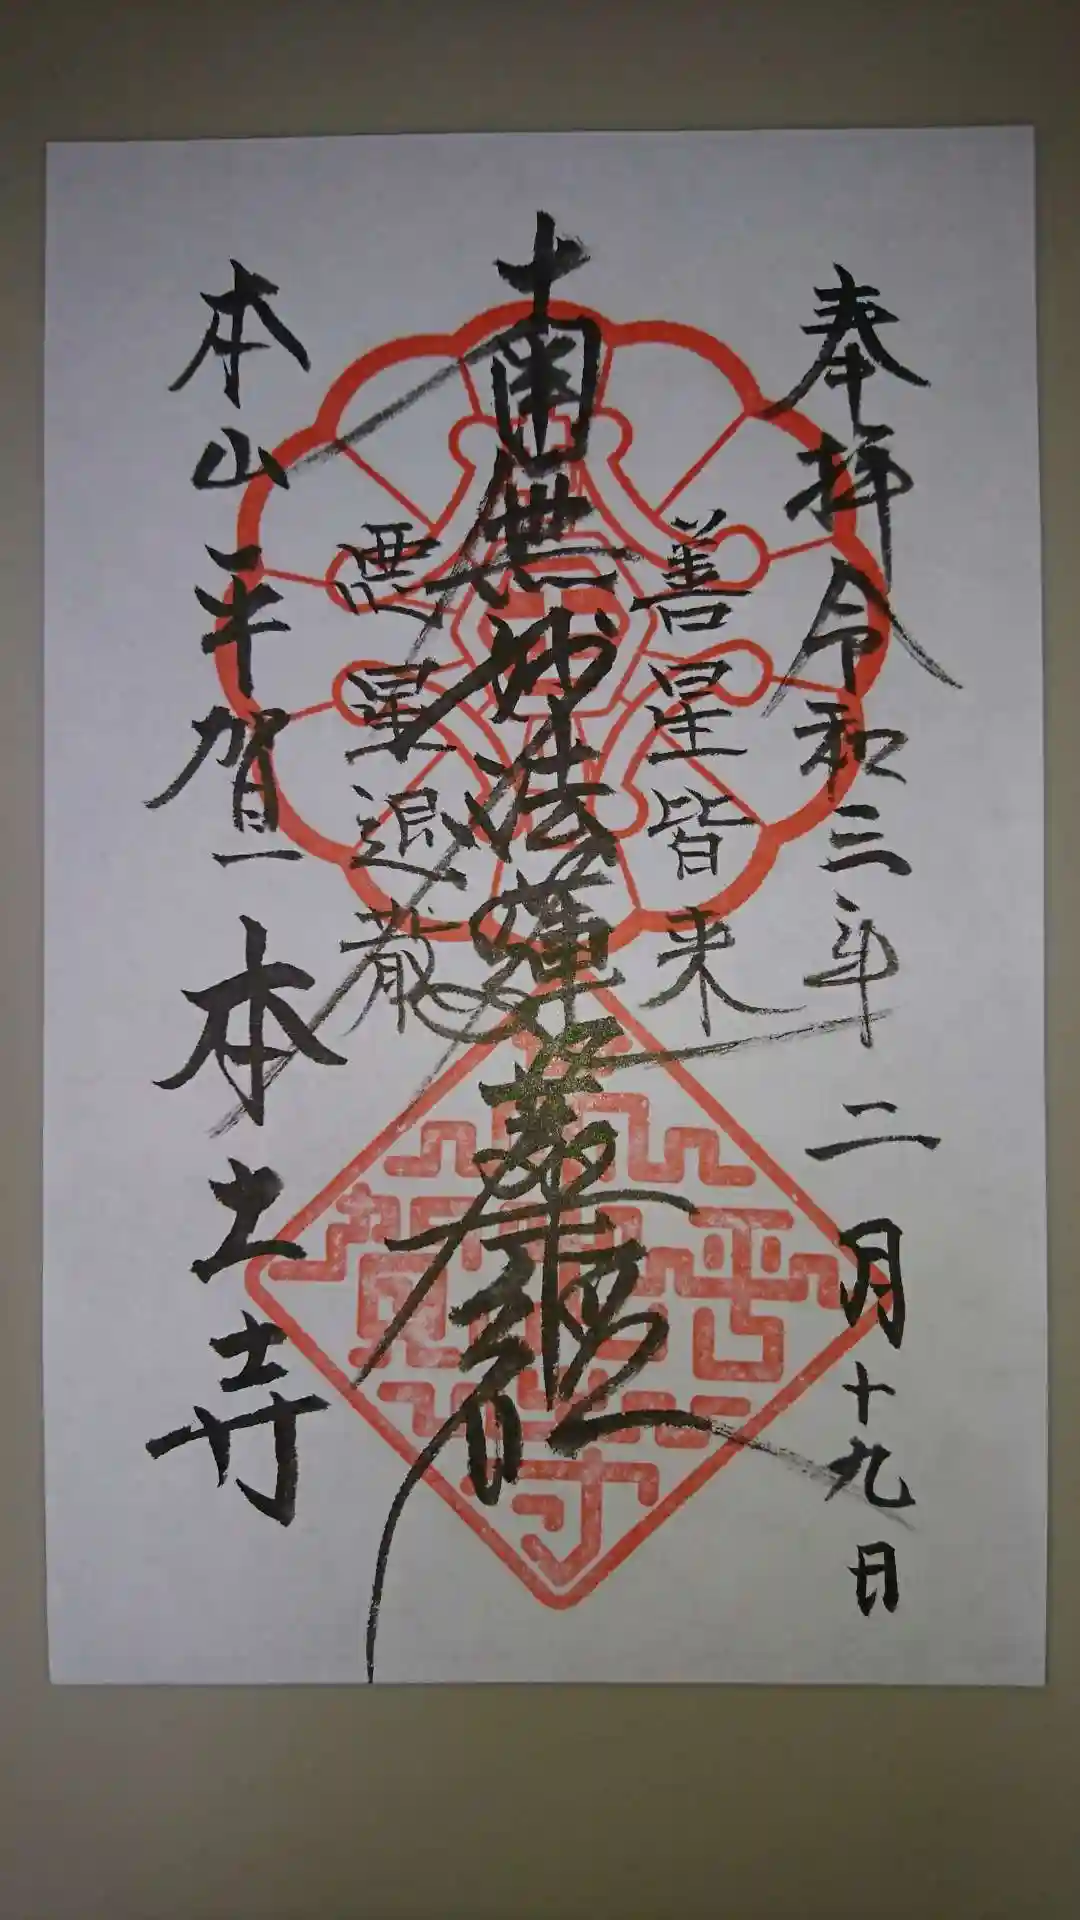 奉拝 令和三年二月十九日
善星皆来
南無妙法蓮華経
悪星退散
本山 平賀 本土寺